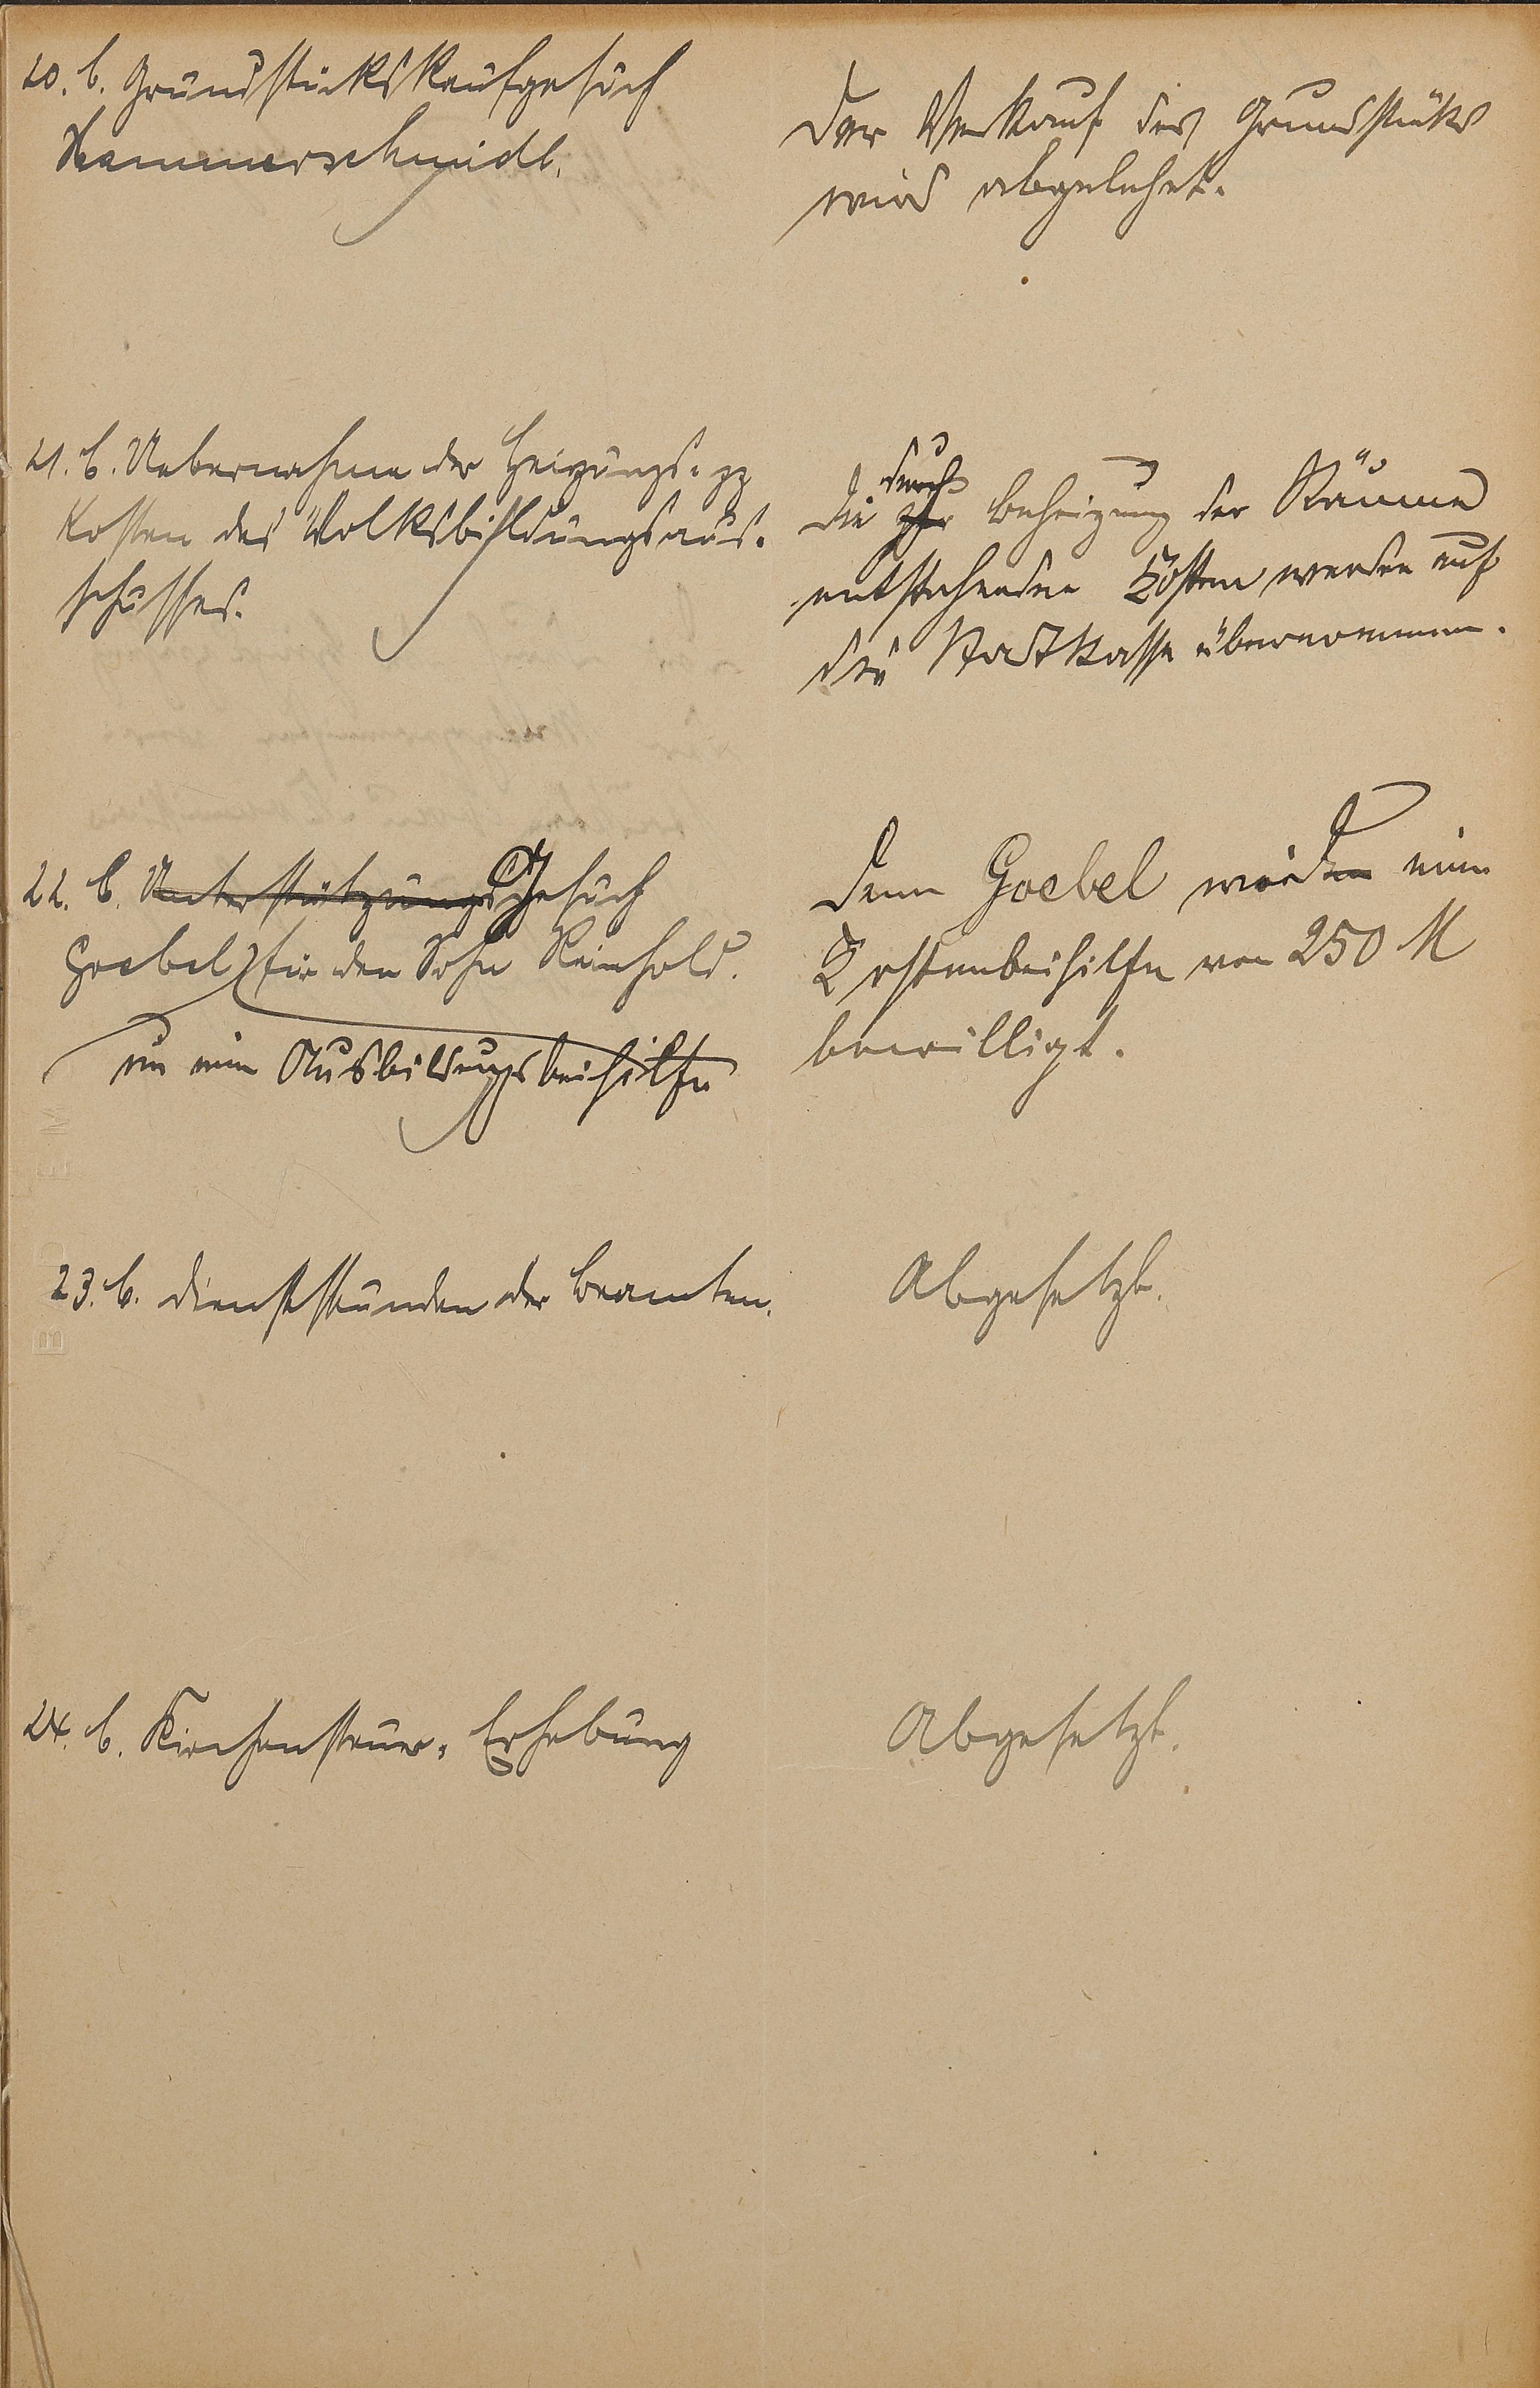 20. b. Grundstückskaufgesuch
Hammerschmidt.
Der Verkauf des Grundstücks
wird abgelehnt.
21. b. Uebernahme der Heizungs- pp
Kosten des Volksbildungsaus-
schusses.
durch
Die zur Beheizung der Räume
entstehenden Kosten werden auf
die Stadtkasse übernommen.
22. b. Unterstützungs Gesuch
Goebel für den Sohn Reinhold.
um eine Ausbildungsbeihilfe
Dem Goebel wird eine
Kostenbeihilfe von 250 M
bewilligt.
23. b. Dienststunden der Beamten.
Abgesetzt.
24. b. Kirchensteuer-Erhebung
Abgesetzt.